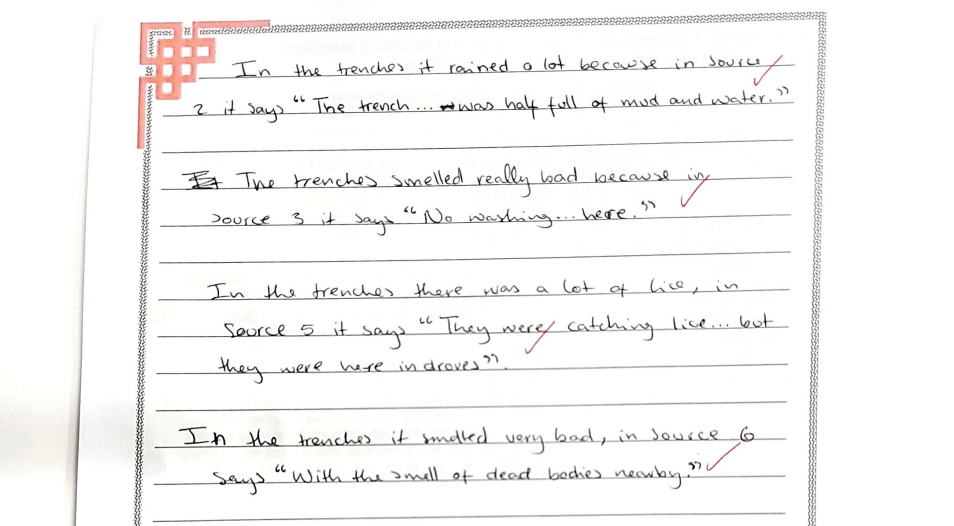 In the trenches it rained a lot because in source
2 it says "The trench... was half full of mud and water."
The trenches smelled really bad because in
source 3 it says "No washing... here."
In the trenches there was a lot of lice, in
source 5 it says "They were catching lice... but
they were here in droves".
In the trenches it smelled very bad, in source 6
says "With the smell of dead bodies nearby."